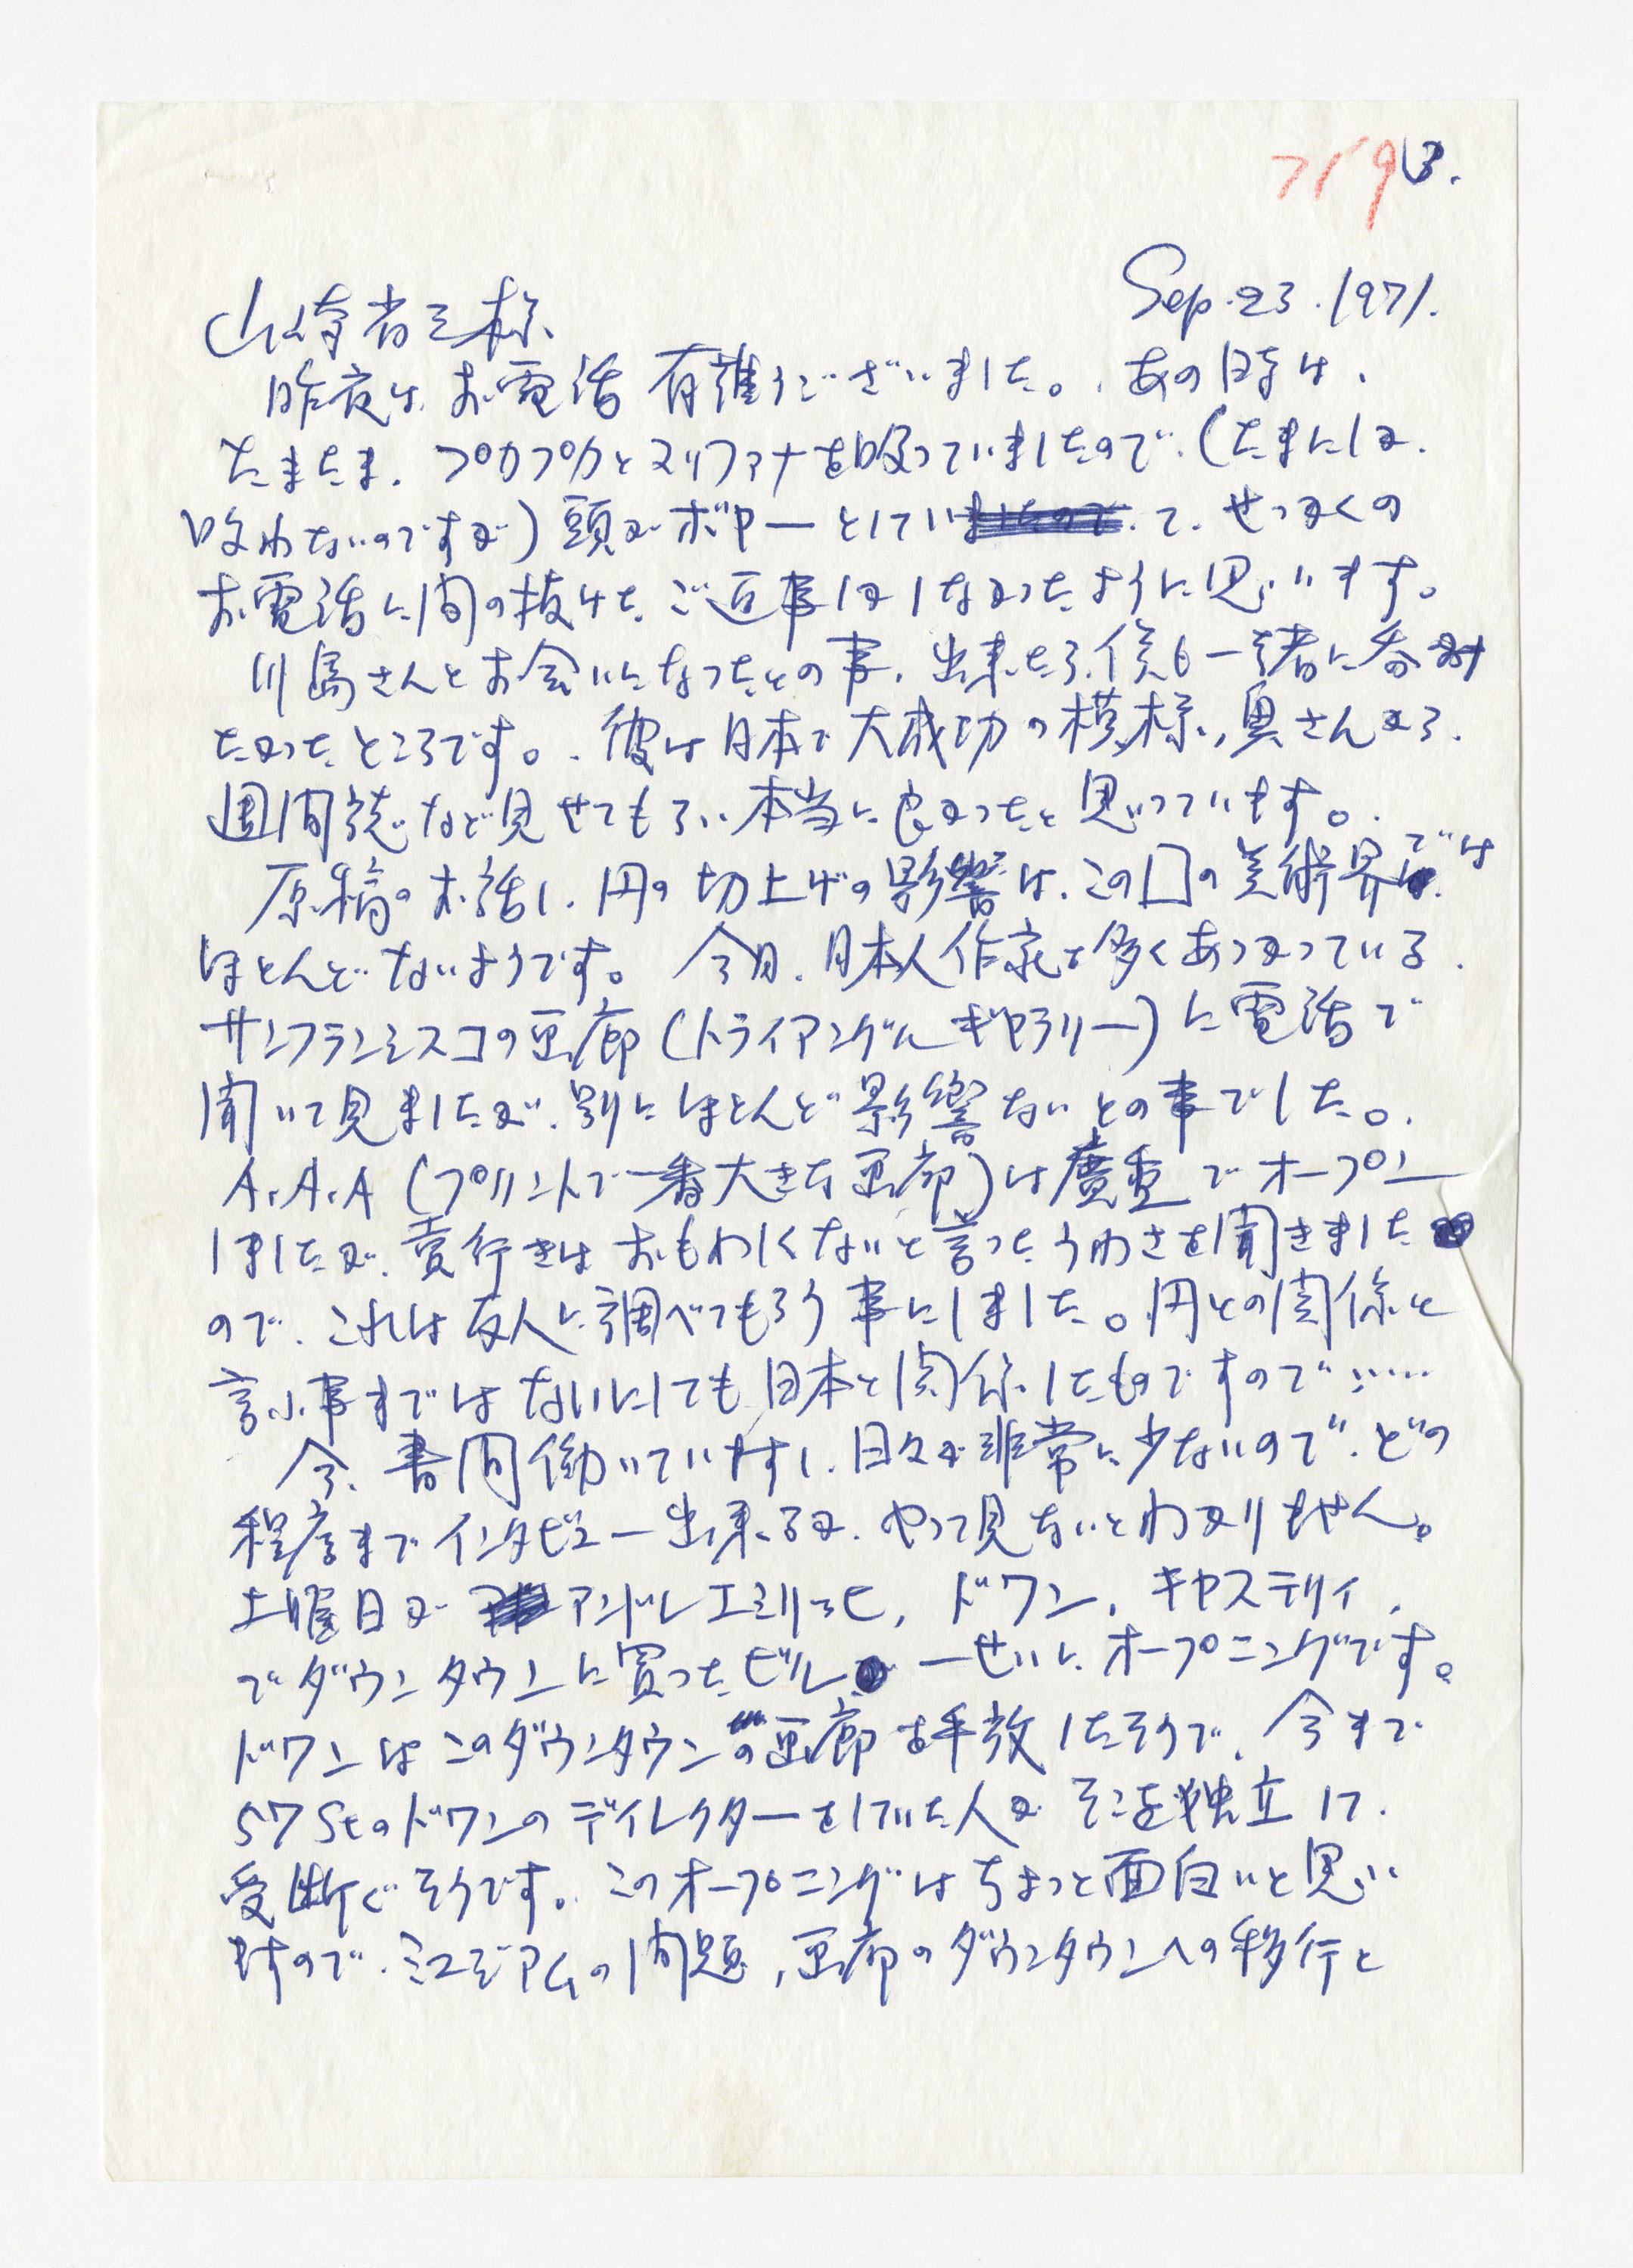 719 13.
Sep. 23. 1971.
山崎省三様
昨夜は、お電話有難うございました。あの時は、
たまたま、プカプカとマリファナを吸っていましたので、(たまにしか、
吸わないのですが)頭がボヤーとしてい て、せっかくの
お電話に間の抜けた、ご返事しかしなかったように思います。
川島さんとお会いになったとの事、出来たら僕も一緒に呑み
たかったところです。彼は日本で大成功の模様、奥さんから、
週間誌など見せてもらい本当に良かったと思っています。
原稿のお話し、円の切上げの影響は、この国の美術界では
ほとんどないようです。今日、日本人作家を多くあつかっている、
サンフランシスコの画廊(トライアングル ギャラリー)に電話で
聞いて見ましたが、別にほとんど影響ないとの事でした。
A.A.A (プリントで一番大きな画廊)は廣重でオープン
しましたが、売行きはおもわしくないと言ったうわさを聞きました
ので、これは友人に調べてもらう事にしました。円との関係と
言う事まではないにしても日本と関係したものですので……
今、昼間働いていますし、日々が非常に少ないので、どの
程度までインタビュー出来るか、やって見ないとわかりません。
土曜日が アンドレエミリッヒ, ドワン, キャステリィ,
でダウンタウンに買ったビル 一せいに、オープニングです。
ドワンはこのダウンタウンの画廊を手放したそうで、今まで
57 Stのドワンのディレクターをしていた人が そこを独立して、
受継ぐそうです。このオープニングはちょっと面白いと思い
ますので、ミュージアムの問題, 画廊のダウンタウンへの移行と